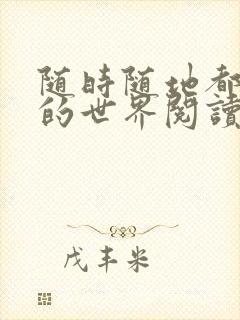 随時随地都
的世界閱讀
戊丰米